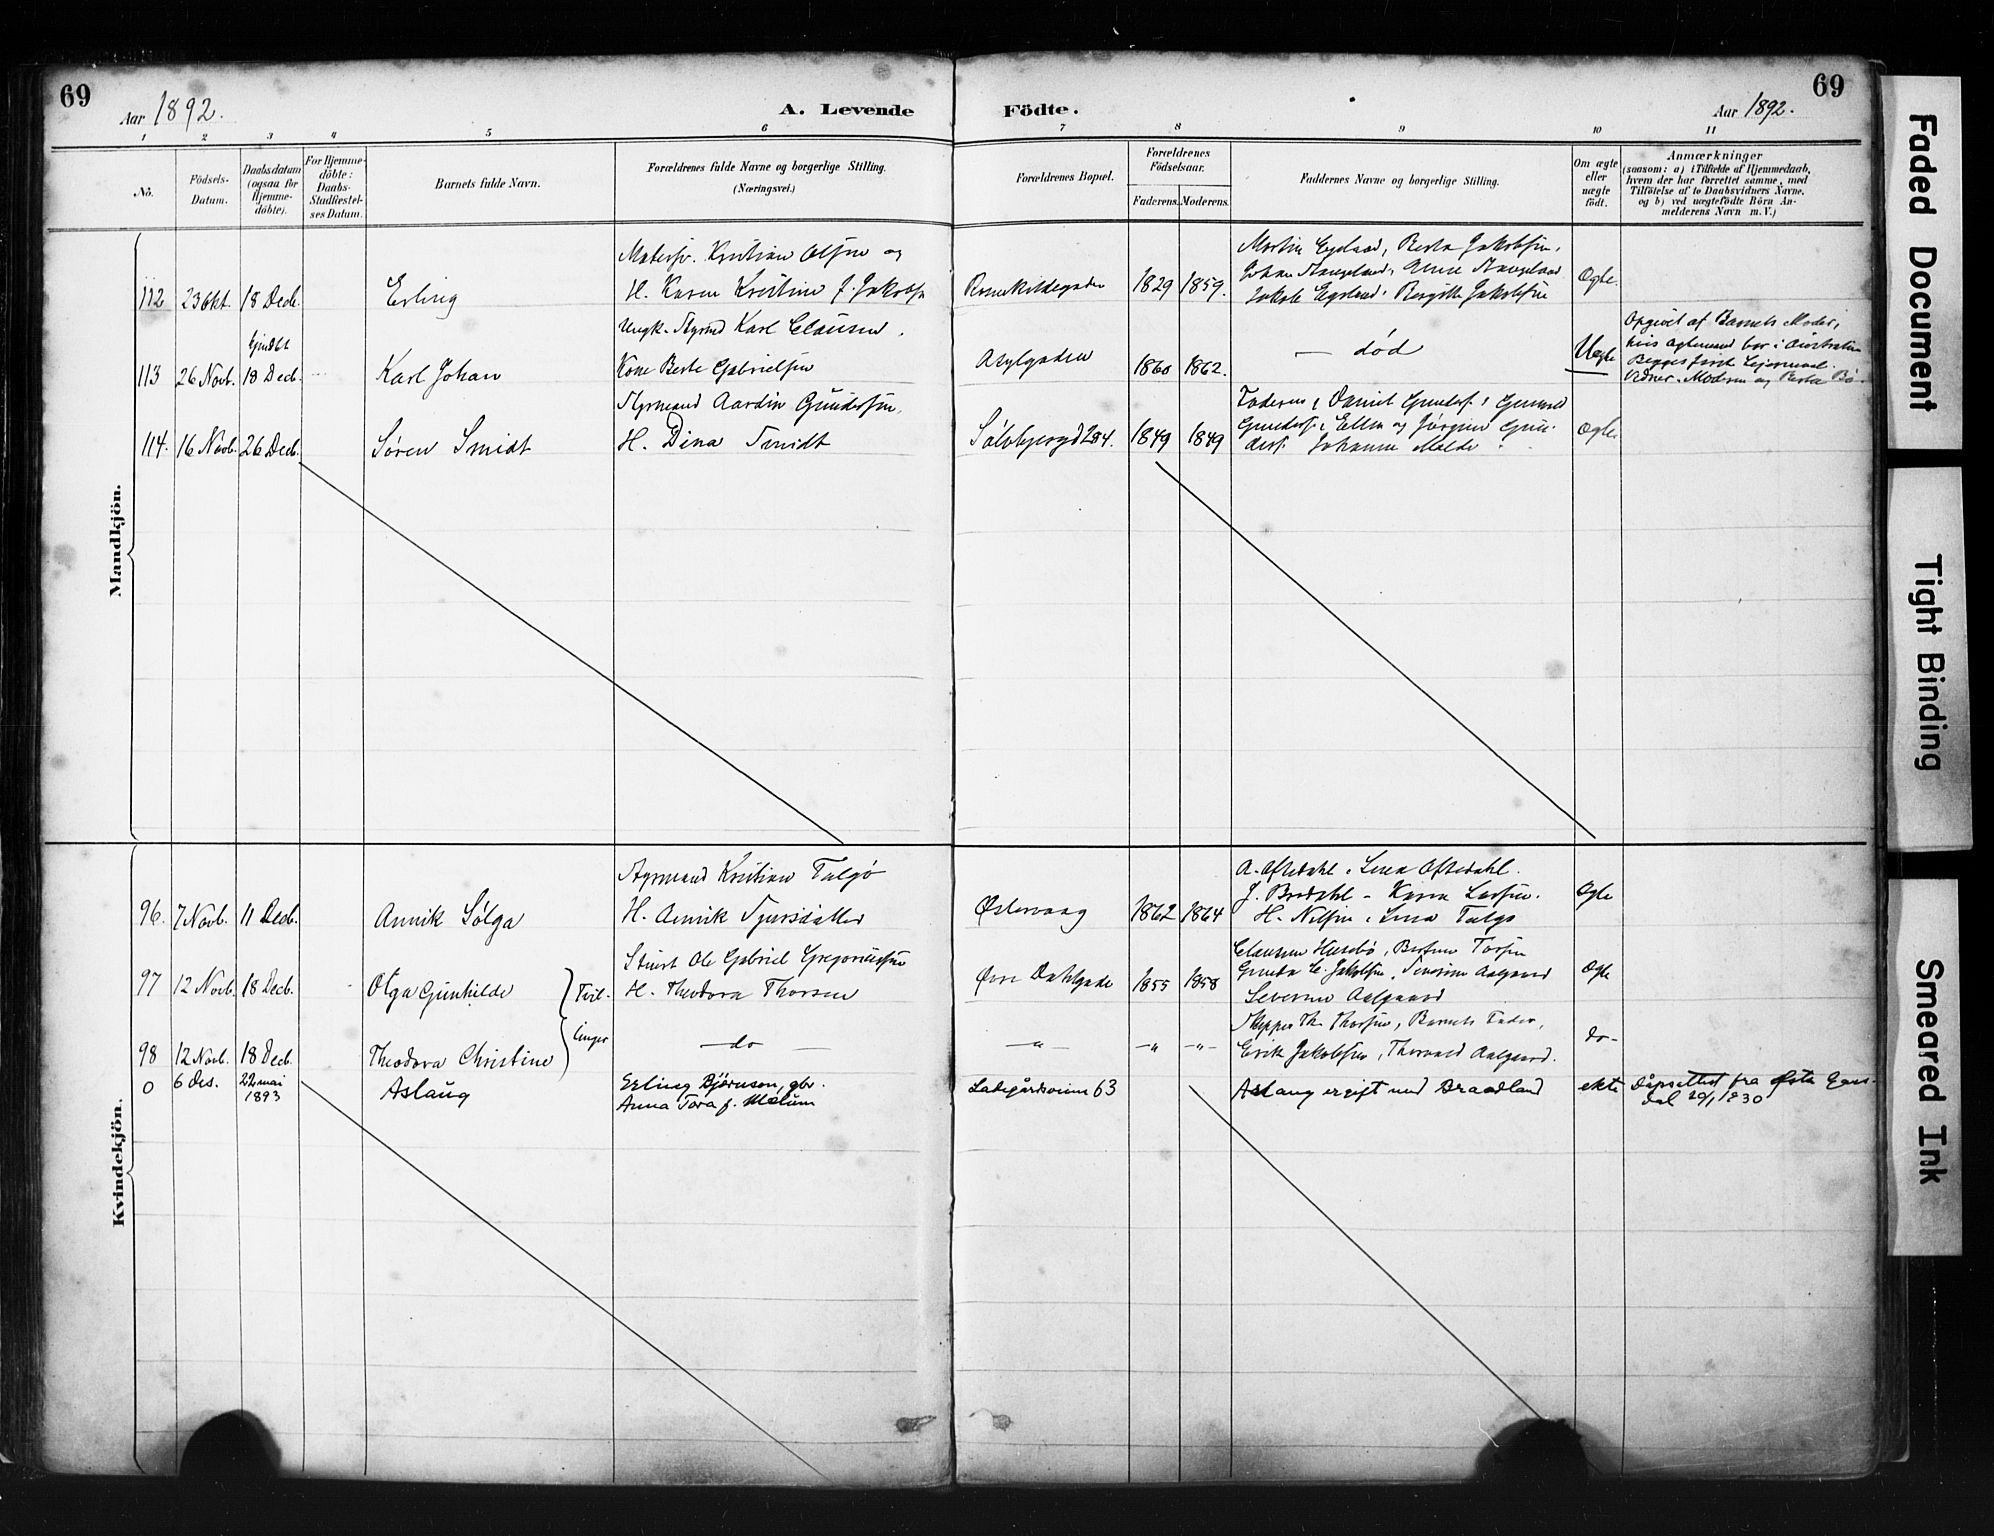 69
Aar 1892.
A. Levende
Födte.
Aar 1892.
69
1 2 3 4 5 6 7 8 9 10 11
No.
Födsels-
Datum.
Daabsdatum
(ogsaa for
Hjemme-
döbte).
For Hjemme-
döbte:
Daabs-
Stadfæstel-
ses Datum.
Barnets fulde Navn.
Forældrenes fulde Navne og borgerlige Stilling.
(Næringsvei.)
Forældrenes Bopæl.
Forældrenes
Födselsaar.
Faderens. Moderens.
Faddernes Navne og borgerlige Stilling.
Om ægte
eller
uægte
født.
Anmærkninger
(saasom: a) i Tilfælde af Hjemmedaab,
hvem der har forrettet samme, med
Tilföielse af to Daabsvidners Navne,
og b) ved uægtefödte Börn An-
melderens Navn m. V.)
Mandkjön.
112 23 Okt. 18 Decb. Erling
Kristian Olsen og
H. Karen Kristine f. Jakobsen
1829 1859.
Martin Egeland, Berta Jakobsen,
Johan Stangeland, Anne Stangeland
Jakob Egeland, Bergitte Jakobsen
Ægte.
113 26 Novb. 18 Decb. Karl Johan
Ungk. Styrmd Karl Clausen.
Kone Berte Gabrielsen
Asylgaden 1860 1862.
— død
Uægte
Opgivet af Barnets Moder,
hvis Ægtemand bor i Australien
Begges første Leiermaal.
114. 16 Novb. 26 Decb. Søren Smidt
Styrmand Aardin Gundersen,
H. Dina Smidt
Sølvbergd 284. 1849 1849
Faderen, Daniel Gunders.,
Gunders., Ellen og Jørgine Gun-
ders. Johanne Molde
Ægte.
Kvindekjön.
96. 7 Novb. 11 Decb. Annik Sølga
Styrmand Kristian Talgø
H. Annik Sjursdatter
Østervaag 1862 1864
A. Oftedahl, Lina Oftedahl.
J. Bredahl - Karen Larsen.
H. Nilsen, Lina Talgø
Ægte
97 12 Novb. 18 Decb. Olga Gunhilde
Tvil-
linger
Stuert Ole Gabriel Gregoriussen
H. Theodora Thorsen
Øvre Dahlgade 1855 1858
Clausen Husebø,
Jakobsen, Aalgaard
Severine Aalgaard
Ægte
98 12 Novb. 18 Decb. Theodora Christine
— do —
— " — — " — — " —
Skipper Th. Thorsen, Barnets Fader,
Erik Jakobsen, Thorvald Aalgaard.
do-
0 6 des. 22 mai
1893
Aslaug
Erling Björnsen, gbr.
Anna Tora f. Mælum
Ladegårdsveien 63
Aslaug er gift med Braadland
ekte
Dåpsattest fra Østre Gaus-
dal 20/1 1930
Faded Document
Tight Binding
Smeared Ink